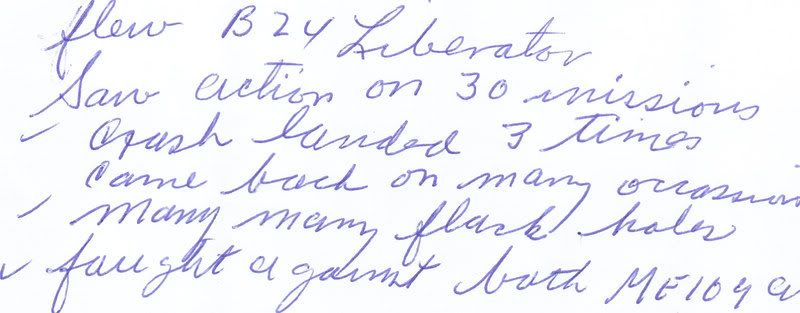 flew B24 Liberator
Saw action on 30 missions
✓ Crash landed 3 times
Came back on many occassion
✓ many many flack holes
✓ faught against both ME109 a